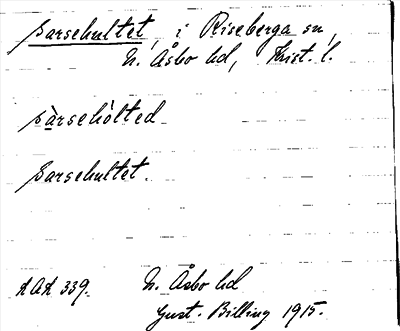 Sarsehultet, i Riseberga sn,
N. Åsbo hd, Krist. l.
sàrsehòlted
Sarsehultet.
N. Åsbo hd
Gust. Billing 1915.
339.